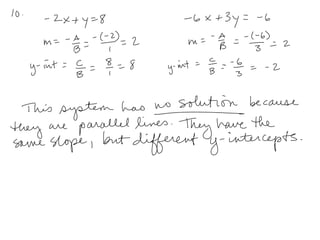 10. -2x + y = 8 -6x + 3y = -6
m = -A/B = -(-2)/1 = 2 m = -A/B = -(-6)/3 = 2
y-int = C/B = 8/1 = 8 y-int = C/B = -6/3 = -2
This system has no solution because
they are parallel lines. They have the
same slope, but different y-intercepts.